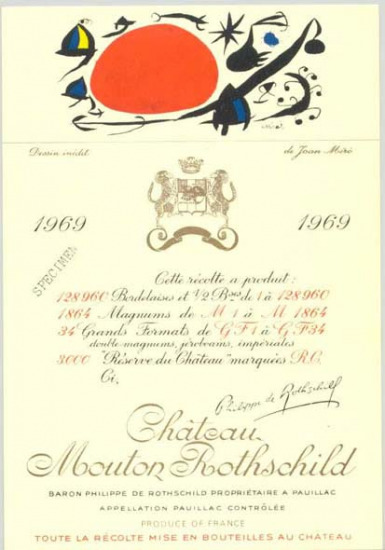 Miró
Dessin inédit de Joan Miró
1969 1969
SPECIMEN
Cette récolte a produit :
128960 Bordelaises et 1/2 Bses de 1 à 128960
1864 Magnums de M 1 à M 1864
34 Grands Formats de G F 1 à G F 34
double-magnums, jéroboams, impériales
3000 "Réserve du Château" marquées R.C.
Ci,
Philippe de Rothschild
Château
Mouton Rothschild
BARON PHILIPPE DE ROTHSCHILD PROPRIÉTAIRE A PAUILLAC
APPELLATION PAUILLAC CONTRÔLÉE
PRODUCE OF FRANCE
TOUTE LA RÉCOLTE MISE EN BOUTEILLES AU CHÂTEAU